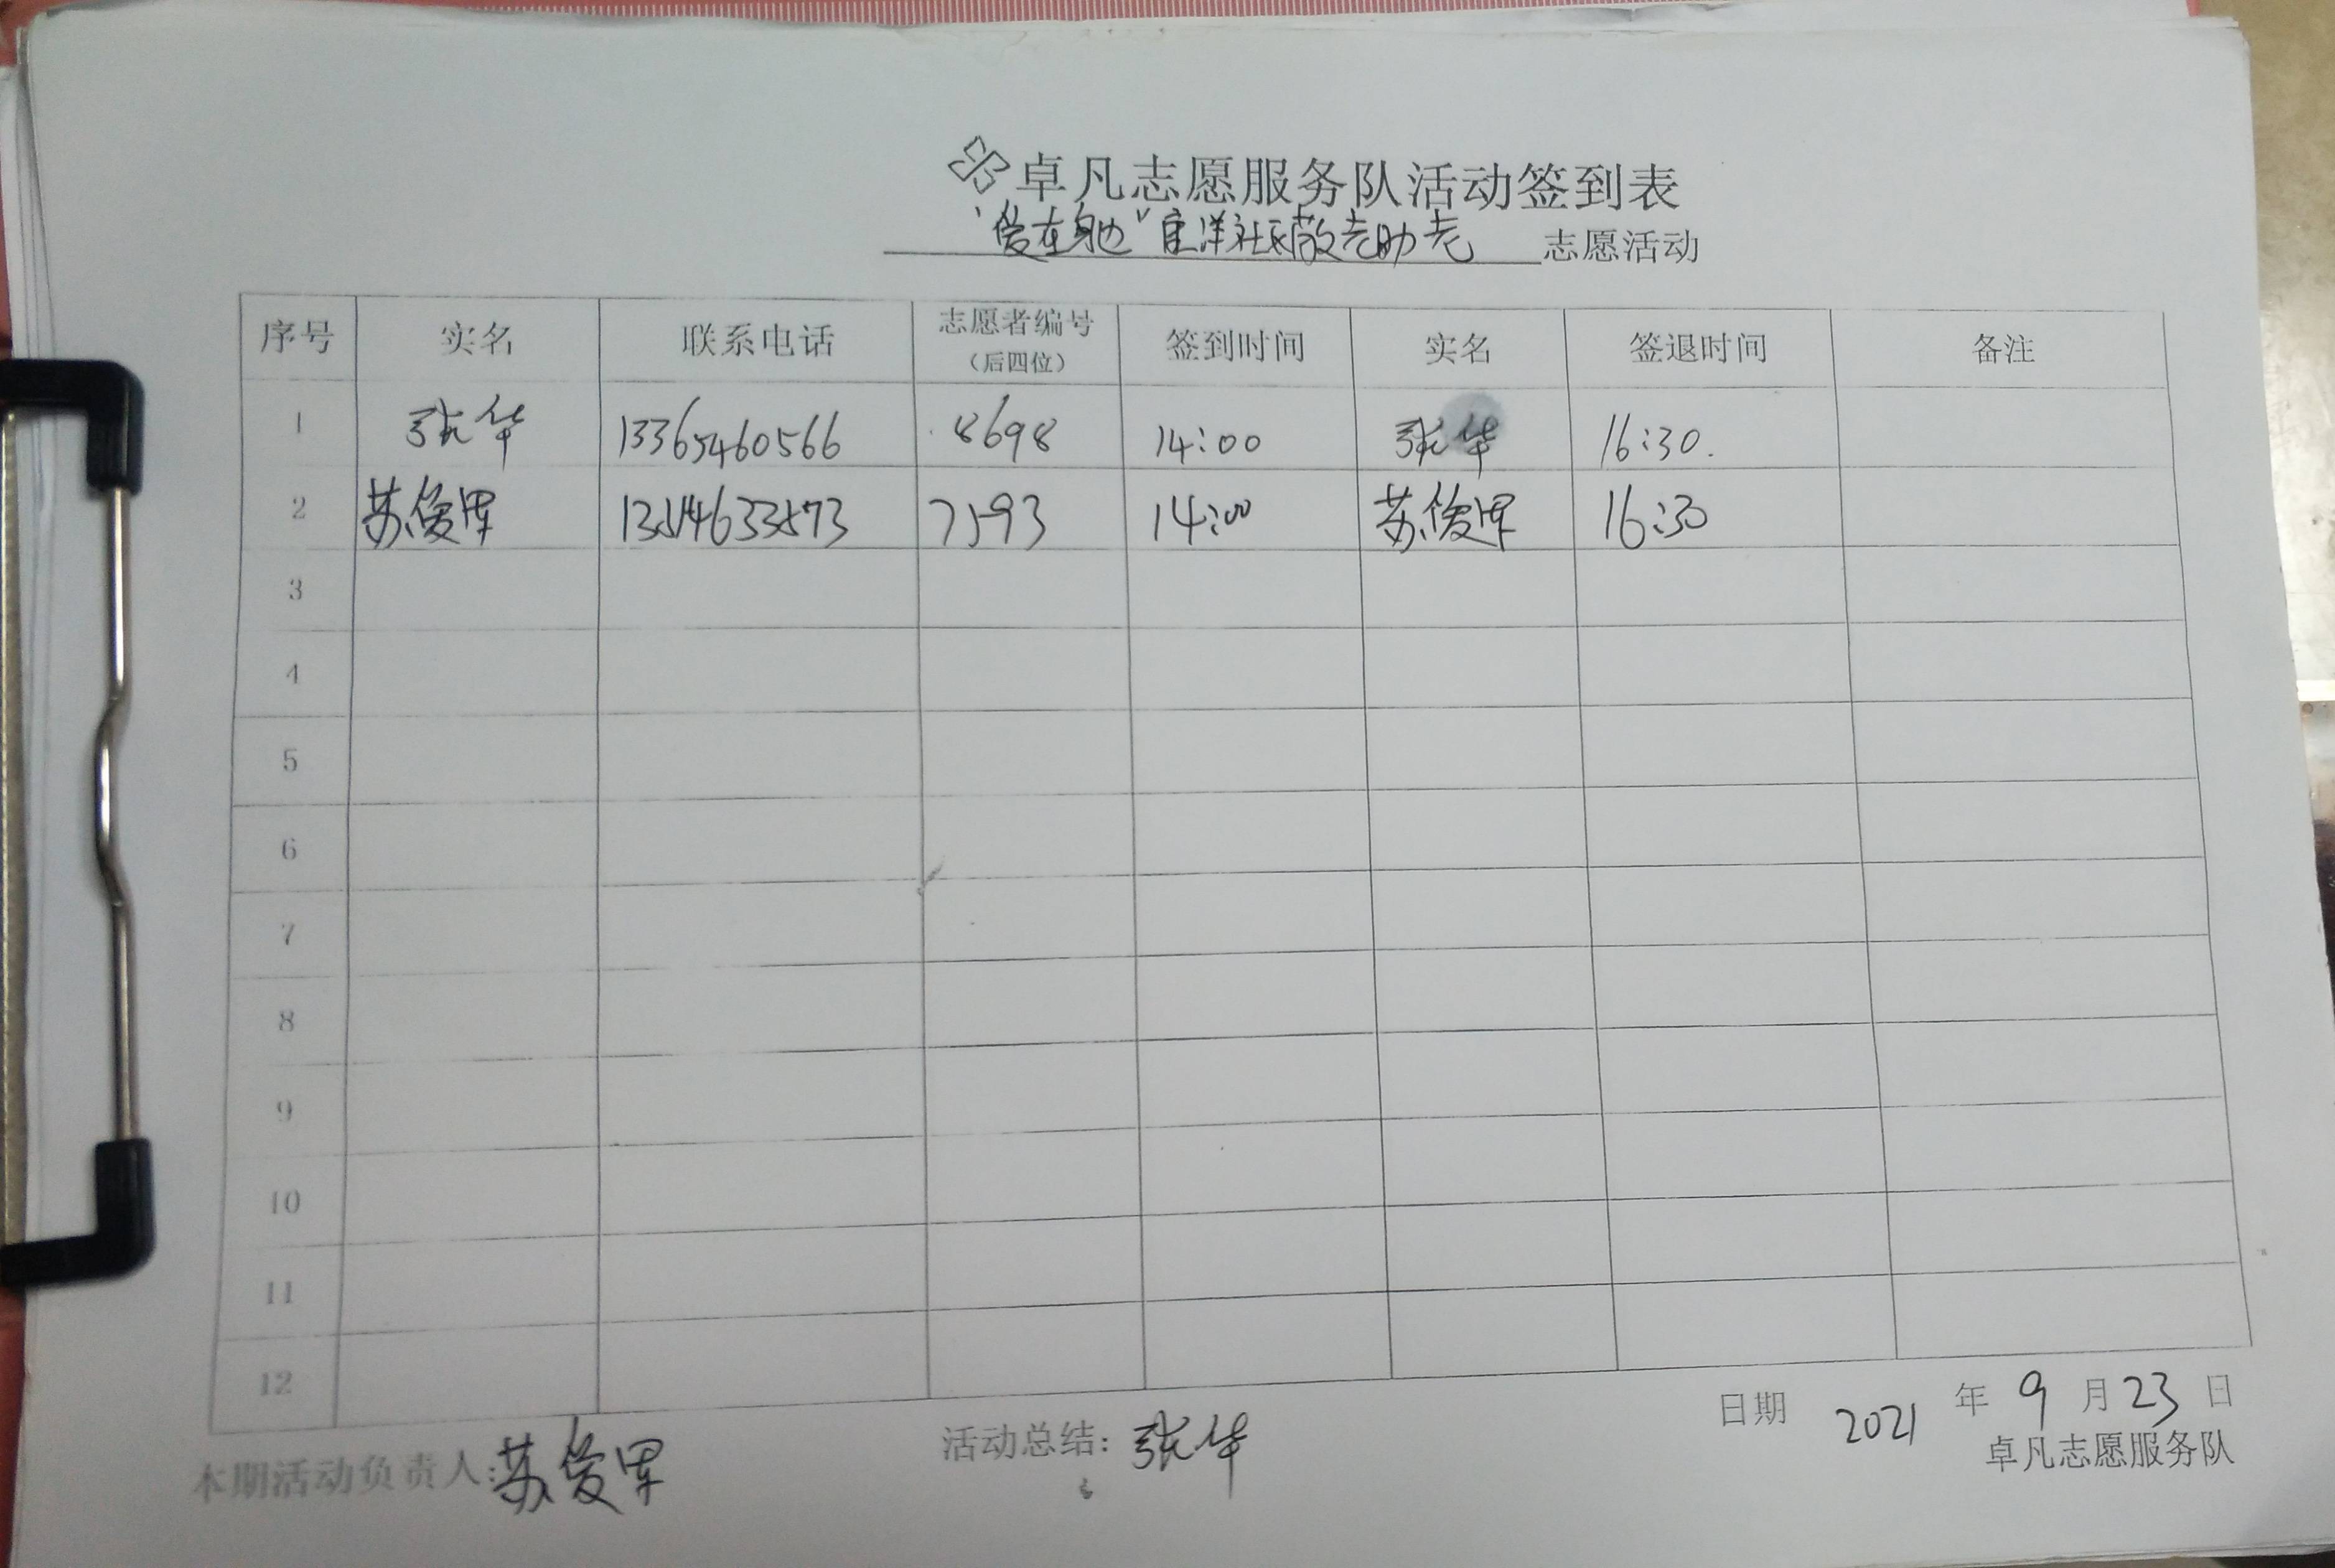 卓凡志愿服务队活动签到表
"爱在身边"官洋社区敬老助老 志愿活动
序号 实名 联系电话 志愿者编号（后四位） 签到时间 实名 签退时间 备注
1 张华 13365460566 8698 14:00 张华 16:30.
2 苏俊军 7593 14:00 苏俊军 16:30
3
4
5
6
7
8
9
10
11
12
本期活动负责人:苏俊军 活动总结: 张华 日期 2021 年 9 月 23 日
卓凡志愿服务队